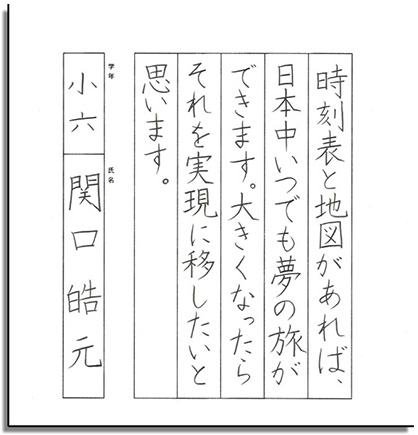 時刻表と地図があれば、
日本中いつでも夢の旅が
できます。大きくなったら
それを実現に移したいと
思います。
学年
小六
氏名
関口皓元